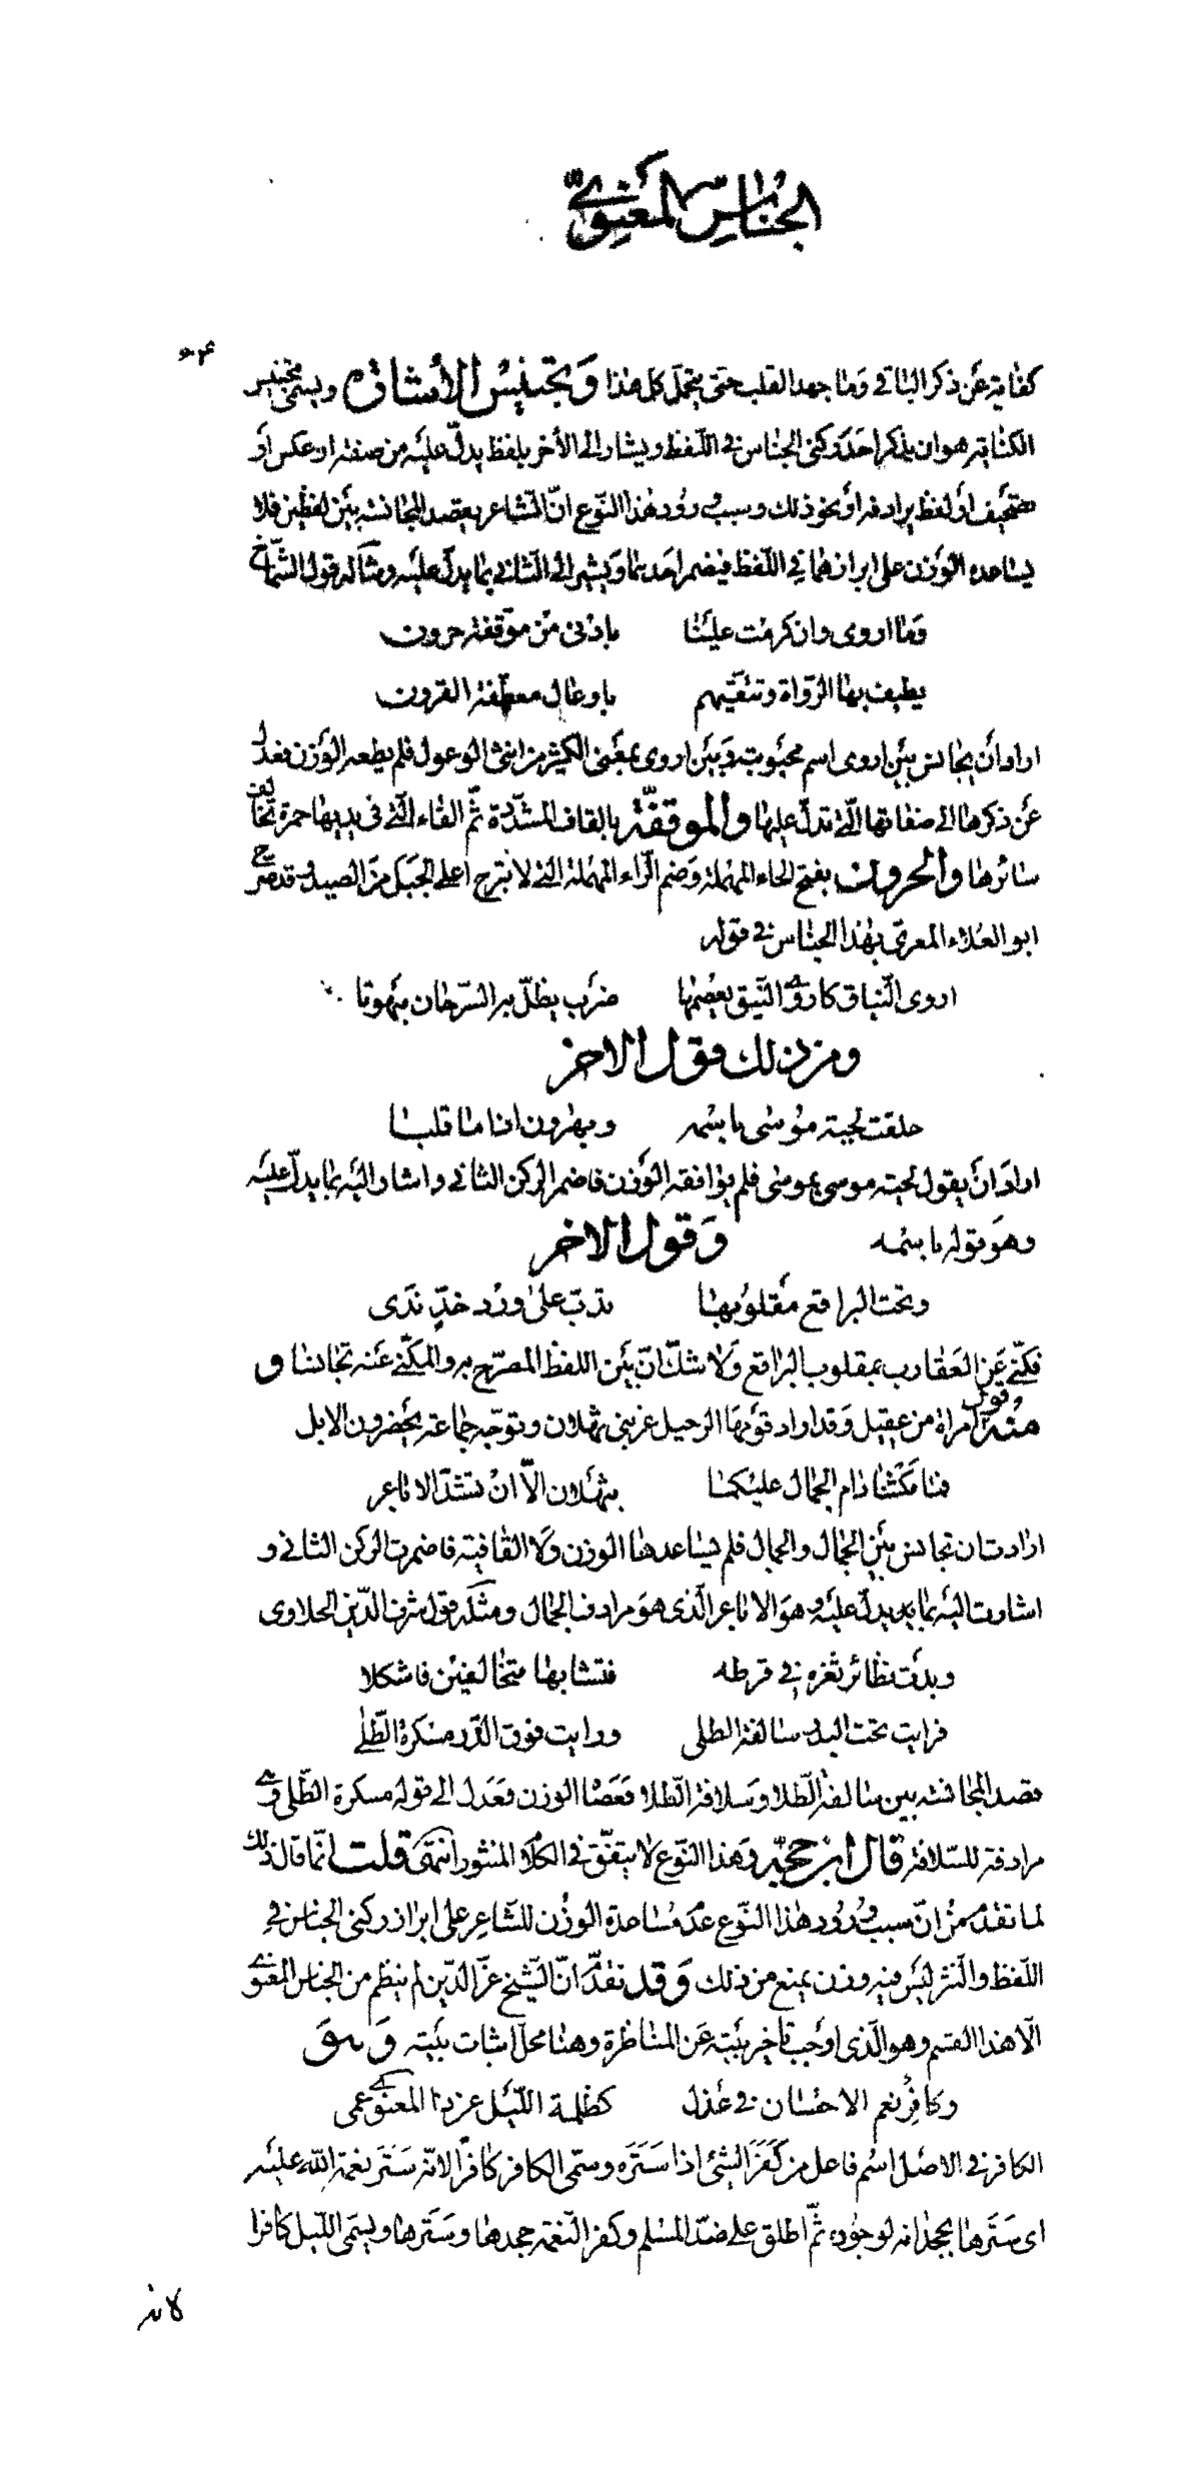 الجناس المعنوي
۶۴
كفاية عن ذكر الباقي وما جهد القلب حتى يتحمل كل هذا وتجنيس الأشارة ويسمى تجنيس
الكناية هو ان يذكر احد ركني الجناس في اللفظ ويشار الى الأخر بلفظ يدل عليه من صفة او عكس أو
تصحيف أو لفظ يرادفه أو نحو ذلك وسبب ورود هذا النوع انّ الشاعر يقصد المجانسة بين لفظين فلا
يساعده الوزن على ابرازهما في اللفظ فيضمر احدهما ويشير الى الثاني بما يدل عليه ومثاله قول الشماخ
فما اروى وان كرمت علينا بادنى من موقّفة حرون
يطيف بها الرواة وتتقيهم باوعال معطّفة القرون
اراد أن يجانس بين اروى اسم محبوبته وبين اروى بمعنى الكثير من انثى الوعول فلم يطعه الوزن فعدل
عن ذكرها الى صفاتها الّتي تدل عليها والموقفّة بالقاف المشدّدة ثم الفاء الّتي في يديها حمرة تخالف
سائرها والحرون بفتح الحاء المهملة وضم الرّاء المهملة التي لا تبرح اعلى الجبل من الصيد وقد صرح
ابو العلاء المعري بهذا الجناس في قوله
اروى النياق كاروى النيق يعصمها ضرب يظلّ به السرحان مبهوتا
ومن ذلك قول الاخر
حلقت لحية موسى باسمه وبهرون اذا ما قلبا
اراد أن يقول لحية موسى بموسى فلم يوافقه الوزن فاضمر الركن الثاني واشار اليه بما يدل عليه
وهو قوله باسمه وقول الاخر
وتحت البراقع مقلوبها تدبّ على ورد خدٍّ ندى
فكنّى عن العقارب بمقلوب البراقع ولا شك انّ بين اللفظ المصرّح به والمكنّى عنه تجانسا و
مثله قول امرأة من عقيل وقد اراد قومها الرحيل عن بني ثهلان وتوجّه جماعة يحضرون الابل
فما مكثنا دام الجمال عليكما بثهلان الّا انْ تشدّ الاباعر
ارادت ان تجانس بين الجمال والجمال فلم يساعدها الوزن ولا القافية فاضمرت الركن الثاني و
اشارت اليه بما يدل عليه وهو الاباعر الّذي هو مرادف الجمال ومثله قول شرف الدّين الحلاوى
وبدت نظائر ثغره في قرطه فتشابها متخالفين فاشكلا
فرايت تحت البدر سالفة الطلى ورايت فوق الدّر مسكرة الطّلى
قصد المجانسة بين سالفة الطّلا وسلافة الطّلا فعصا الوزن فعدل الى قوله مسكرة الطّلى وهي
مرادفة للسّلافة قال ابن حجة وهذا النّوع لا يتفق في الكلام المنثور انتهى قلت انّما قال ذلك
لما تقدم من انّ سبب ورود هذا النّوع عدم مساعدة الوزن للشاعر على ابراز ركني الجناس في
اللّفظ والنّثر ليس فيه وزن يمنع من ذلك وقد تقدّم انّ الشّيخ عزّ الدّين لم ينظم من الجناس المعنوي
الّا هذا القسم وهو الّذي اوجب تاخير بيته عن المناظرة وهنا محلّ اثبات بيته وهو
وكافر نعم الاحسان في عذل كظلمة اللّيل عن ذا المعنوي عمى
الكافر في الاصل اسم فاعل من كفر الشئ اذا ستره وسمّى الكافر كافرا لانّه ستر نعمة الله عليه
اى سترها بجحدانه لوجوده ثمّ اطلق على ضدّ المسلم وكفر النّعمة جحدها وسترها ويسمى اللّيل كافرا
لانه